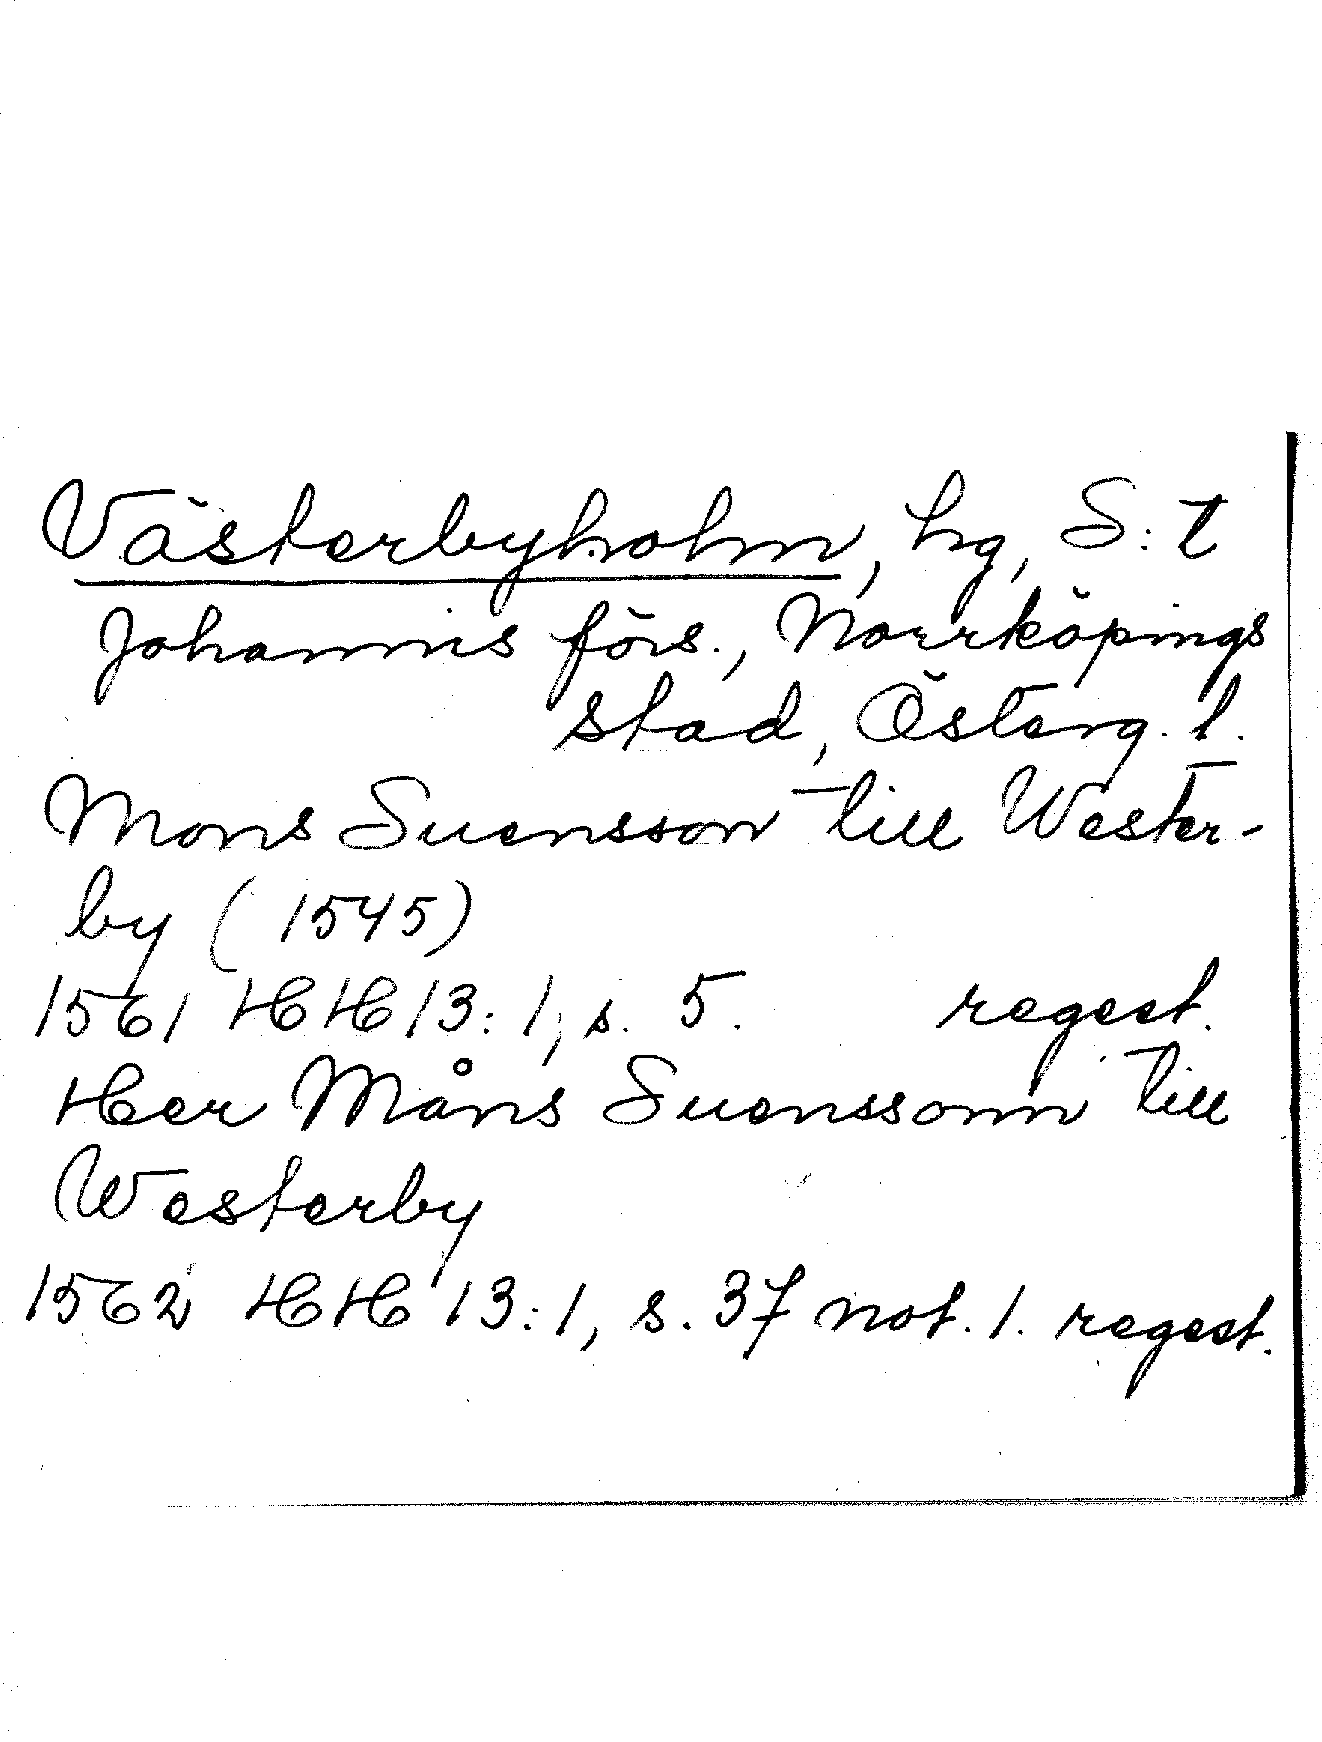 Västerbyholm, hg, S:t
Johannis förs., Norrköpings
stad, Österg. l.
Mons Suensson till Wester-
by (1545)
1561 HH 13:1, s. 5. regest.
Her Måns Suenssonn till
Westerby
1562 HH 13:1, s. 37 not. 1. regest.